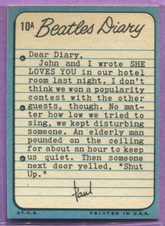 10A Beatles Diary
Dear Diary,
John and I wrote SHE
LOVES YOU in our hotel
room last night. I don't
think we won a popularity
contest with the other
guests, though. No mat-
ter how low we tried to
sing, we kept disturbing
someone. An elderly man
pounded on the ceiling
for about an hour to keep
us quiet. Then someone
next door yelled, "Shut
Up."
Paul
PRINTED IN U.S.A.